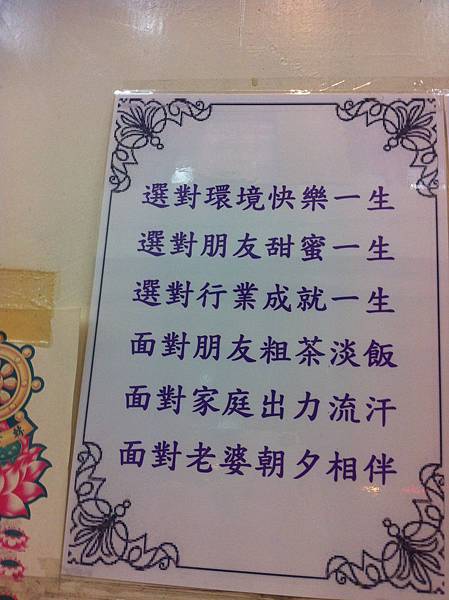 選對環境快樂一生
選對朋友甜蜜一生
選對行業成就一生
面對朋友粗茶淡飯
面對家庭出力流汗
面對老婆朝夕相伴